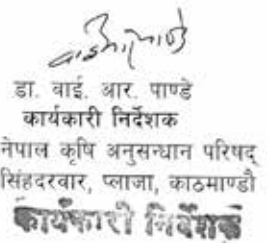 डा. वाई. आर. पाण्डे
कार्यकारी निर्देशक
नेपाल कृषि अनुसन्धान परिषद्
सिंहदरवार, प्लाजा, काठमाण्डौ
कार्यकारी निर्देशक